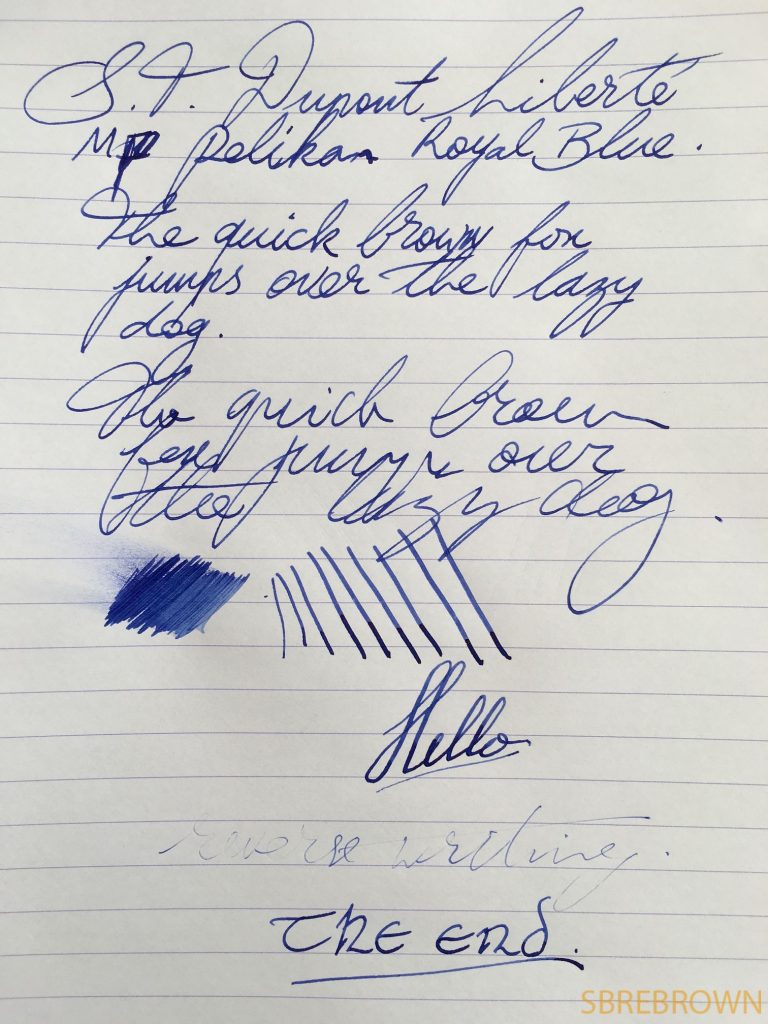 S.T. Dupont Liberté
M Pelikan Royal Blue.
The quick brown fox
jumps over the lazy
dog.
The quick brown
fox jumps over
the lazy dog.
Hello
reverse writing.
THE END.
SBREBROWN